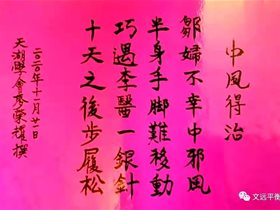 中風得治
鄒婦不幸中邪風
半身手脚難移動
巧遇李醫一銀針
十天之後步履松
二〇二〇年十一月廿日
天湖學會麥榮耀 撰
文远平衡